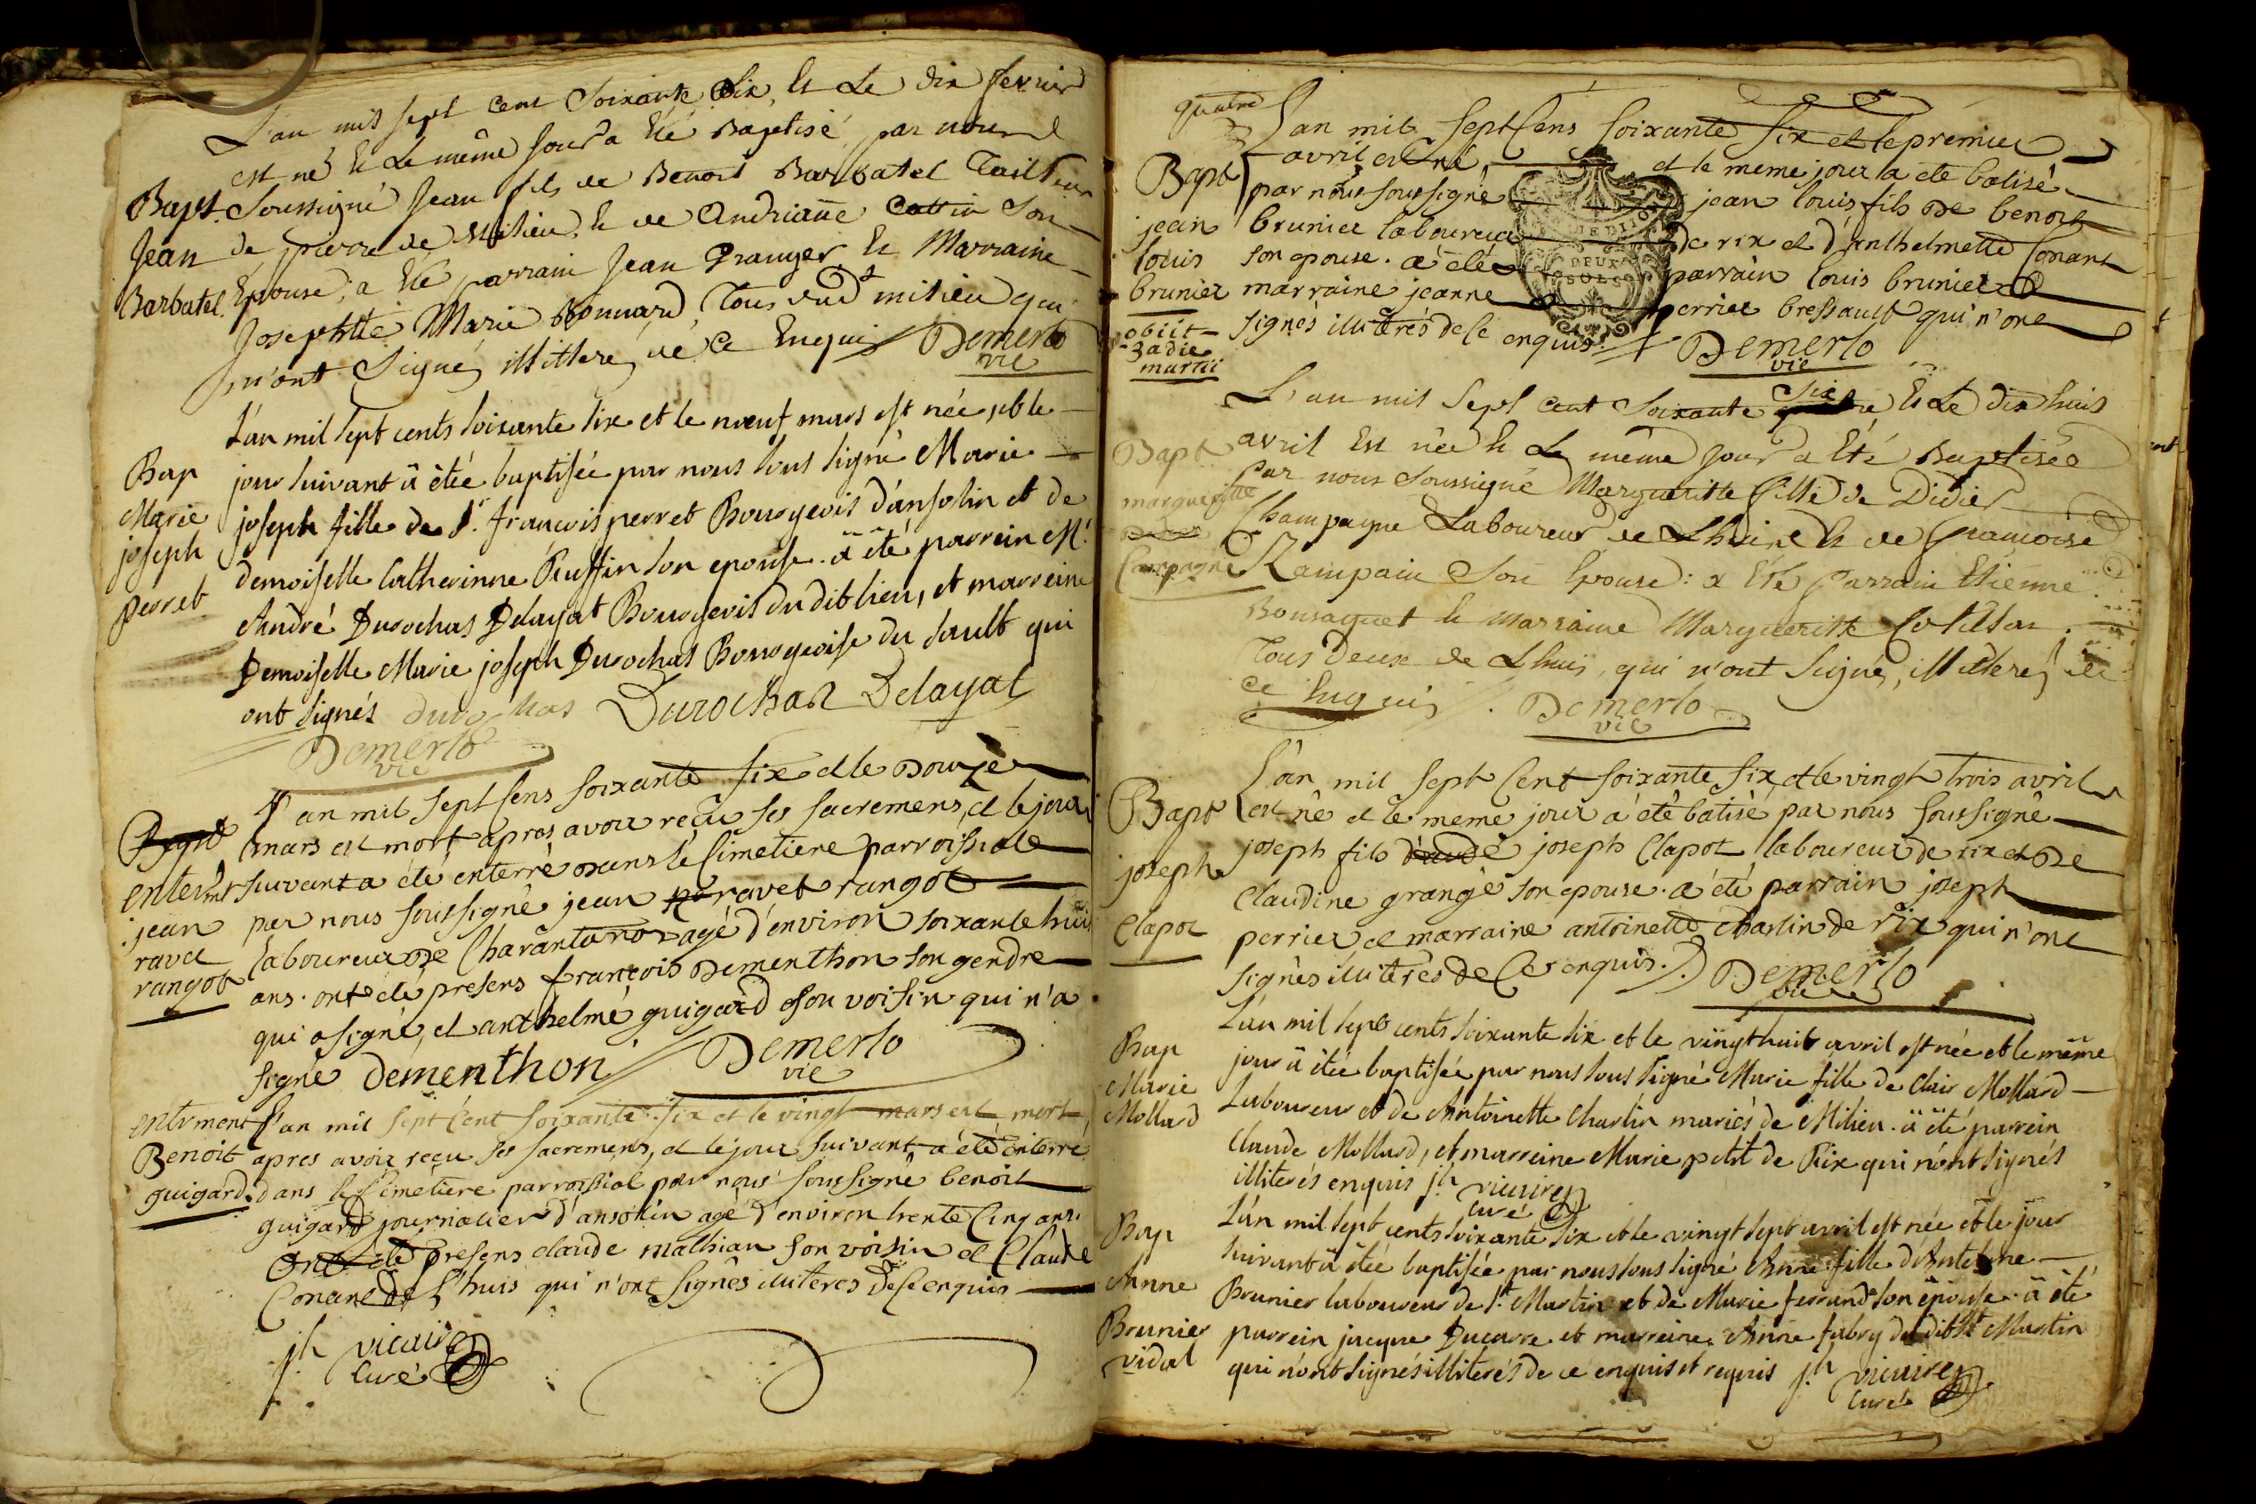 L'an mil sept cent Soixante Six, Et Le dix fevrier
est né Et Le même Jour a Eté Baptisé, par nous
Bapt. Soussigné Jean fils de Benoit Barbatel Tailleur
Jean de pierre de Milieu, Et de Andrianne Cottin Son
Barbatel. Epouse; a Eté parrain Jean Granger Et Marraine
Josephte Marie Bonnard Tous dud.t milieu qui
n'ont Signé, illittere, de Ce Enquis Demerlo
vic
L'an mil sept cents soixante six et le neuf mars est née, et le
Bap jour suivant â êtée baptisée par nous sous signé Marie
Marie joseph fille de S.r françois perret Bourgeois d'ansolin et de
joseph demoiselle Catherinne Ruffin son epouse. â êté parrein M.r
perret André Durochas Delayat Bourgeois du dit lieu, et marreine
Demoiselle Marie joseph Durochas Bourgeoise du Sault qui
ont signés durochas Durochas Delayat
Demerlo
vic
L'an mil sept sens soixante six et le douzè
Bapt mars est mort apres avoir reçu ses sacremens, et le jour
enterm.t suivant a été enterré dans le Cimetiere parroissiale
jean par nous soussigné jean ravet rangot
ravet laboureur de Charantonod agé d'environ soixante huit
rangot ans. ont été presens françois Dementhon son gendre
qui a signé, et anthelme guigard son voisin qui n'a
signé dementhon Demerlo
vic
enterment L'an mil sept cent soixante six et le vingt mars est mort
Benoit apres avoir reçu ses sacremens, et le jour suivant, a été enterré
guigard. dans le Cimetiere parroissial par nous soussigné benoit
guigard journalier d'ansolin agé d'environ trente Cinq ans.
Ont été presens claude mathian son voisin et Claude
Conand de L'huis qui n'ont signés illiteres de Ce enquis
j.h vicaire
Curé
quatre
L'an mil sept Cens soixante six et le premier
avril est né et le meme jour la été batisé
Bapt par nous soussigné jean louis fils de benoit
jean brunier laboureur de rix et d'anthelmette Conant
louis son epouse. a été parrain louis brunier
brunier marraine jeanne perrier bressault qui n'ont
obiit signés illitérés de Ce enquis. Demerlo
3a die vic
martii
MED
DEUX
SOLS
L'an mil Sept cent Soixante Six Et Le dix huit
Bapt avril Est née Et Le même Jour a Eté Baptisée
margueritte Par nous Soussigné Margueritte fille de Didier
Champagne Laboureur de Lhuire Et de francoise
Campagne Rampain Son Epouse: a Eté Parrain Etienne
Bousaquet Et Marraine Margueritte
Tous Deux de Lhuis, qui n'ont Signé, illittere, de
ce Enquis Demerlo
vic
L'an mil sept Cent soixante six, et le vingt trois avril
Bapt est né et le meme jour a été batisé par nous soussigné
joseph joseph fils joseph Clapot laboureur de rix et de
Clapot Claudine grangé son epouse. a été parrain joseph
perrier et marraine antoinette Charlin de rix qui n'ont
signés illiterés de Ce enquis. Demerlo
vic
L'an mil sept cents soixante six et le vingt huit avril est née et le même
Bap jour â êtée baptisée par nous sous signé Marie fille de Clair Mollard
Marie Laboureur et de Antoinette Charlin mariés de Milieu. â êté parrein
Mollard Claude Mollard, et marreine Marie petit de Rix qui n'ont signés
illiterés enquis j.h vicaire
Curé
L'an mil sept cents soixante six et le vingt sept avril est née et le jour
Bap suivant â êtée baptisée par nous sous signé Anne fille d'Antelme
Anne Brunier laboureur de S.t Martin et de Marie ferrand son épouse. â êté
Brunier parrein jacque Ducarre et marreine Anne fabry du dit S.t Martin
vidal qui n'ont signés illiterés de ce enquis et requis j.h vicaire
Curé